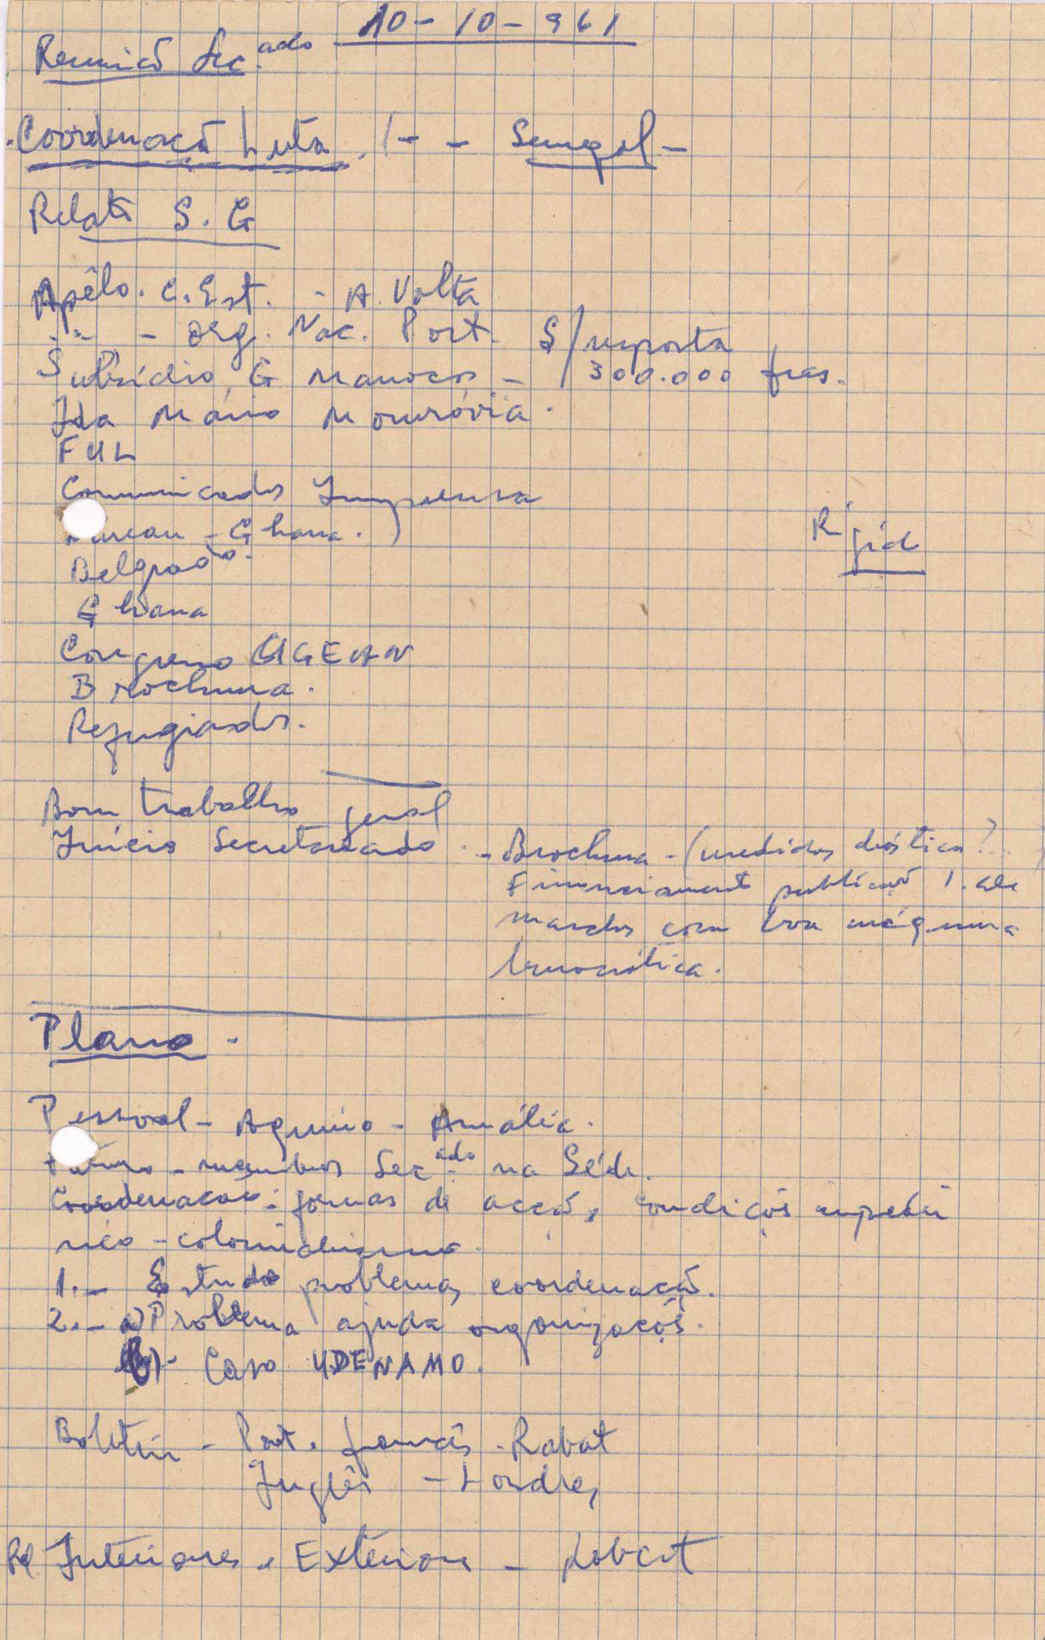 10-10-961
Reunião Sec.ado
Coordenaçã Luta /- - Senegal -
Relatº S. G
Apêlo. C. Est. - A. Volta
" - Org. Nac. Port. S/resposta
Subsídio G Marrocos - 300.000 frcs.
Ida Mário Monróvia.
FUL
Comunicados Imprensa
Bureau - Ghana.
Rígid
Belgrado.
Ghana
Congresso UGEAN
Brochura.
Refugiados.
Bom trabalho geral
Início Secretariado - Brochura - (medidas drásticas?
Financiament publicaçõ
com boa máquina
burocrática.
Plano -
Pessoal - Aquino - Amália.
- membros Sec.ado na Séde.
Coordenação: formas de acção, condições
- colonialismo.
1. - Estudo problemas coordenaçã.
2. - a) Problema ajuda organizaçõs.
b) - Caso UDENAMO.
Boletim - Port. francês - Rabat
Inglês - Londres
Rel Interiores e Exteriores - Rabat